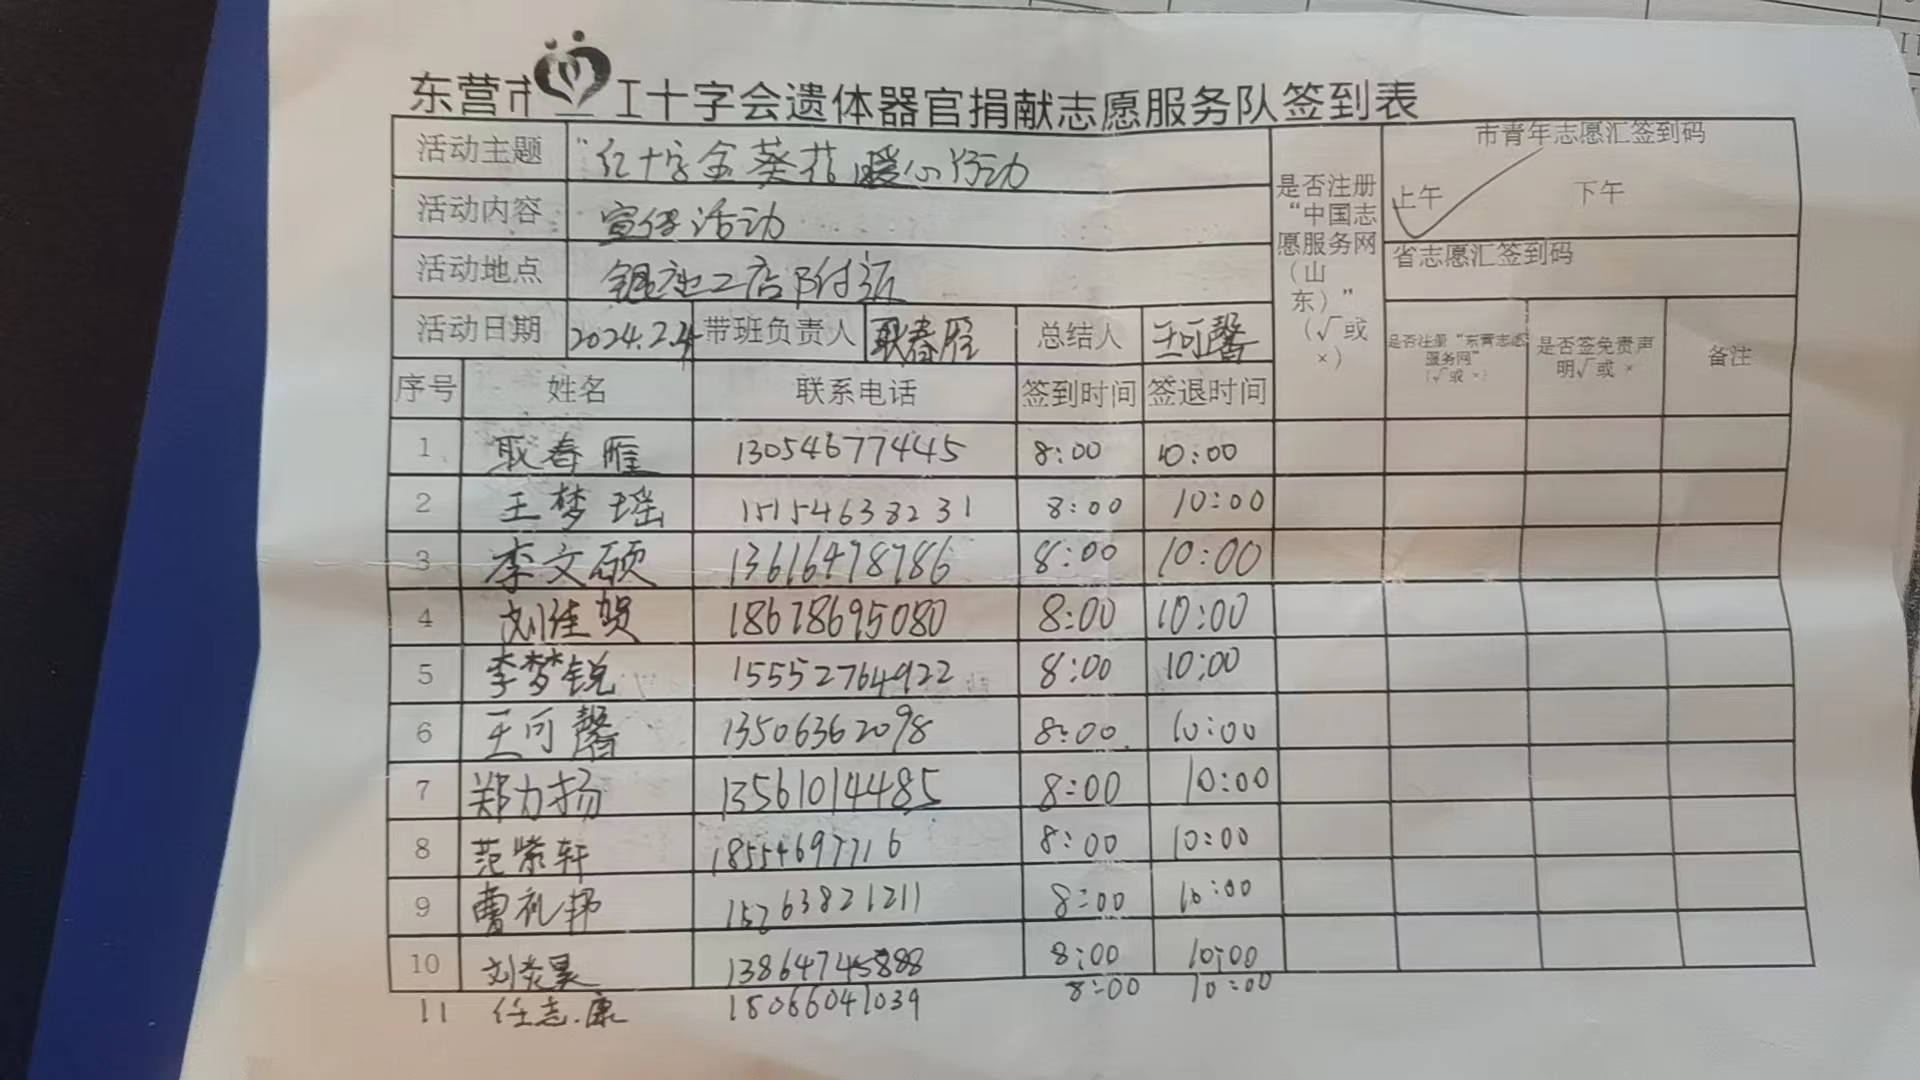 东营市 工十字会遗体器官捐献志愿服务队签到表
活动主题 "红十字金葵花暖心行动
活动内容 宣传活动
活动地点 银座工店附近
活动日期 2024.2.4 带班负责人 耿春雁 总结人 王可馨
是否注册“中国志愿服务网（山东）”（√或×）
市青年志愿汇签到码
上午 √ 下午
省志愿汇签到码
是否注册“东营志愿服务网”（√或×） 是否签免责声明√或× 备注
序号 姓名 联系电话 签到时间 签退时间
1 耿春雁 13054677445 8:00 10:00
2 王梦瑶 15154638231 8:00 10:00
3 李文硕 13616478786 8:00 10:00
4 刘佳贺 18678695080 8:00 10:00
5 李梦锐 15552764922 8:00 10:00
6 王可馨 13506362098 8:00 10:00
7 郑力扬 13561014485 8:00 10:00
8 范紫轩 18554697716 8:00 10:00
9 曹礼邦 15263821211 8:00 10:00
10 刘炎昊 13864745888 8:00 10:00
11 任志康 18066041039 8:00 10:00